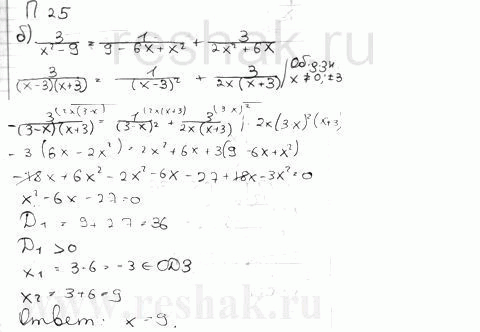 П 25
б) 3/(x²-9) = 1/(9-6x+x²) + 3/(2x²+6x)
3/((x-3)(x+3)) = 1/(x-3)² + 3/(2x(x+3)) | x≠0; ±3
-3^(2x(3-x))/((3-x)(x+3)) = 1^(2x(x+3))/(3-x)² + 3^(3-x)²/(2x(x+3)) ; · 2x(3-x)²(x+3)
-3(6x-2x²) = 2x²+6x+3(9-6x+x²)
-18x+6x²-2x²-6x-27+18x-3x²=0
x²-6x-27=0
D₁ = 9+27=36
D₁ >0
x₁ = 3-6=-3 ∈ ОДЗ
x₂ = 3+6=9
Ответ: x-9.
www.reshak.ru